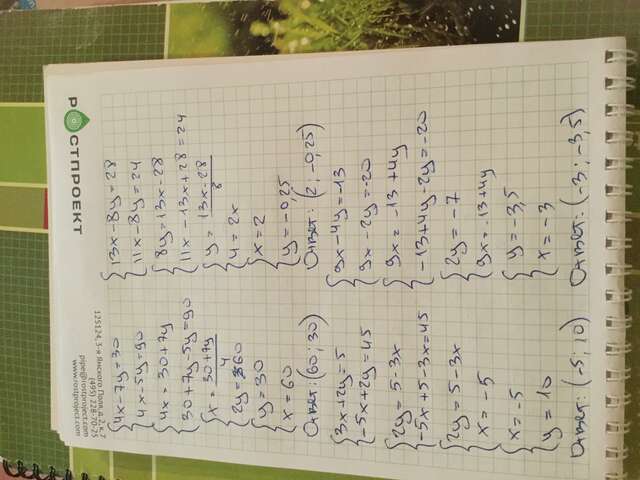 РОСТПРОЕКТ
125124, 3-я Ямского Поля, д. 2, к. 7
(495) 228-70-25
pipe@rostproject.com
www.rostproject.com
{ 4x-7y=30
4x-5y=90
{ 4x=30+7y
30+7y-5y=90
{ x=30+7y/4
2y=60
{ y=30
x=60
Ответ: (60; 30)
{ 3x+2y=5
-5x+2y=45
{ 2y=5-3x
-5x+5-3x=45
{ 2y=5-3x
x=-5
{ x=-5
y=10
Ответ: (-5; 10)
{ 13x-8y=28
11x-8y=24
{ 8y=13x-28
11x-13x+28=24
{ y=13x-28/8
4=2x
{ x=2
y=-0,25
Ответ: (2; -0,25)
{ 9x-4y=-13
9x-2y=-20
{ 9x=-13+4y
-13+4y-2y=-20
{ 2y=-7
9x=-13+4y
{ y=-3,5
x=-3
Ответ: (-3; -3,5)